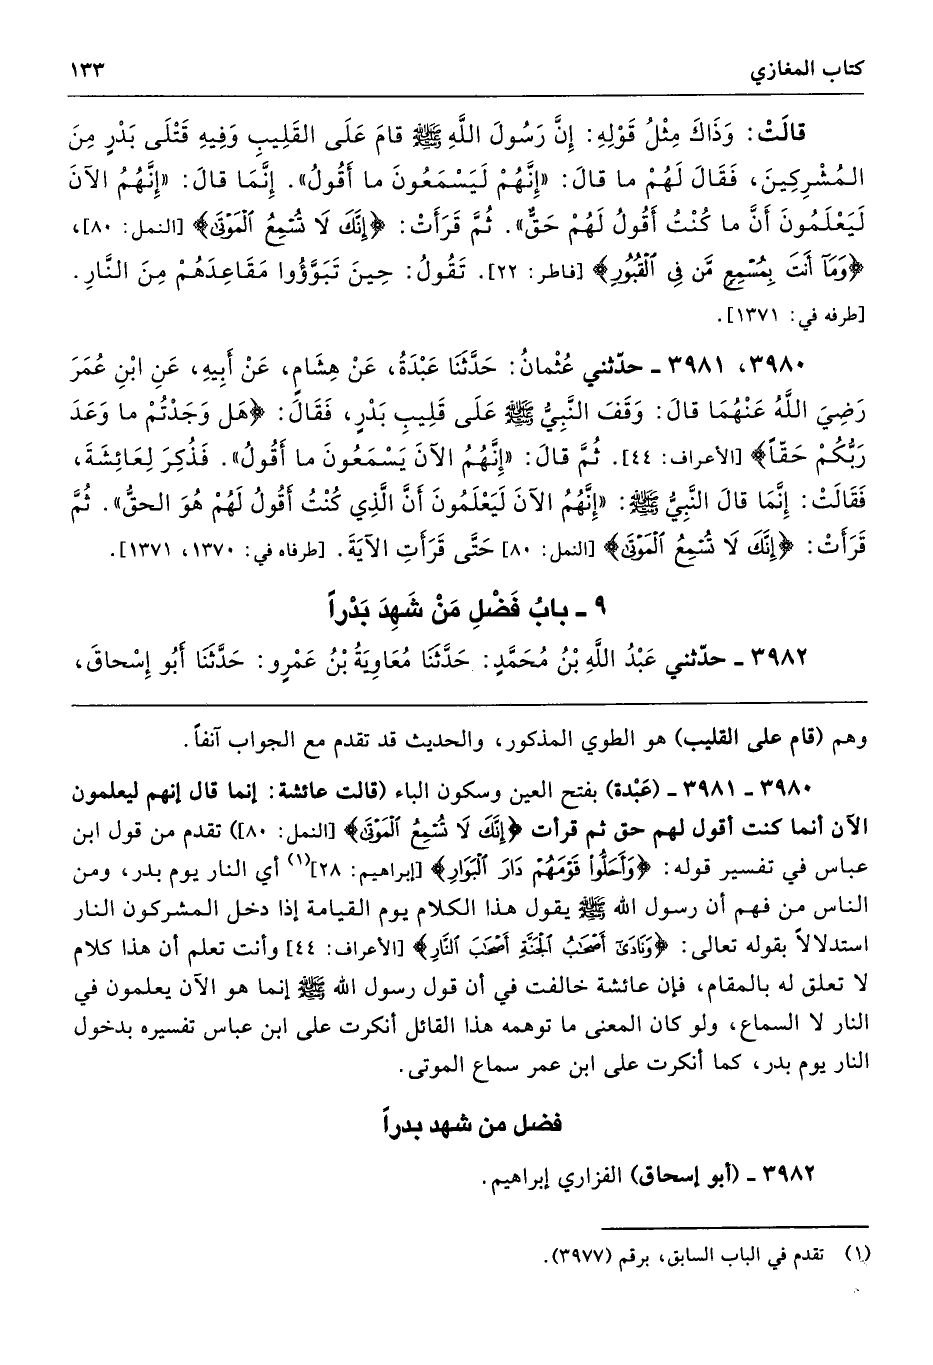 كتاب المغازي ١٣٣
قالَتْ: وَذَاكَ مِثْلُ قَوْلِهِ: إِنَّ رَسُولَ اللَّهِ ﷺ قامَ عَلَى القَلِيبِ وَفِيهِ قَتْلَى بَدْرٍ مِنَ
المُشْرِكِينَ، فَقَالَ لَهُمْ ما قالَ: «إِنَّهُمْ لَيَسْمَعُونَ ما أَقُولُ». إِنَّمَا قالَ: «إِنَّهُمُ الآنَ
لَيَعْلَمُونَ أَنَّ ما كُنْتُ أَقُولُ لَهُمْ حَقٌّ». ثُمَّ قَرَأَتْ: ﴿إِنَّكَ لَا تُسْمِعُ الْمَوْتَى﴾ [النمل: ٨٠]،
﴿وَمَا أَنْتَ بِمُسْمِعٍ مَّن فِي الْقُبُورِ﴾ [فاطر: ٢٢]. تَقُولُ: حِينَ تَبَوَّؤُوا مَقَاعِدَهُمْ مِنَ النَّارِ.
[طرفه في: ١٣٧١].
٣٩٨٠، ٣٩٨١ ـ حدّثني عُثْمانُ: حَدَّثَنَا عَبْدَةُ، عَنْ هِشَامٍ، عَنْ أَبِيهِ، عَنِ ابْنِ عُمَرَ
رَضِيَ اللَّهُ عَنْهُمَا قالَ: وَقَفَ النَّبِيُّ ﷺ عَلَى قَلِيبِ بَدْرٍ، فَقَالَ: ﴿هَل وَجَدْتُمْ ما وَعَدَ
رَبُّكُمْ حَقّاً﴾ [الأعراف: ٤٤]. ثُمَّ قالَ: «إِنَّهُمُ الآنَ يَسْمَعُونَ ما أَقُولُ». فَذُكِرَ لِعَائِشَةَ،
فَقَالَتْ: إِنَّمَا قالَ النَّبِيُّ ﷺ: «إِنَّهُمُ الآنَ لَيَعْلَمُونَ أَنَّ الَّذِي كُنْتُ أَقُولُ لَهُمْ هُوَ الحقُّ». ثُمَّ
قَرَأَتْ: ﴿إِنَّكَ لَا تُسْمِعُ الْمَوْتَى﴾ [النمل: ٨٠] حَتَّى قَرَأَتِ الآيَةَ. [طرفاه في: ١٣٧٠، ١٣٧١].
٩ ـ بابُ فَضْلِ مَنْ شَهِدَ بَدْراً
٣٩٨٢ ـ حدّثني عَبْدُ اللَّهِ بْنُ مُحَمَّدٍ: حَدَّثَنَا مُعَاوِيَةُ بْنُ عَمْرٍو: حَدَّثَنَا أَبُو إِسْحاقَ،
وهم (قام على القليب) هو الطوي المذكور، والحديث قد تقدم مع الجواب آنفاً.
٣٩٨٠ ـ ٣٩٨١ ـ (عَبْدة) بفتح العين وسكون الباء (قالت عائشة: إنما قال إنهم ليعلمون
الآن أنما كنت أقول لهم حق ثم قرأت ﴿إِنَّكَ لَا تُسْمِعُ الْمَوْتَى﴾ [النمل: ٨٠]) تقدم من قول ابن
عباس في تفسير قوله: ﴿وَأَحَلُّوا قَوْمَهُمْ دَارَ الْبَوَارِ﴾ [إبراهيم: ٢٨]⁽¹⁾ أي النار يوم بدر، ومن
الناس من فهم أن رسول الله ﷺ يقول هذا الكلام يوم القيامة إذا دخل المشركون النار
استدلالاً بقوله تعالى: ﴿وَنَادَى أَصْحَابُ الْجَنَّةِ أَصْحَابَ النَّارِ﴾ [الأعراف: ٤٤] وأنت تعلم أن هذا كلام
لا تعلق له بالمقام، فإن عائشة خالفت في أن قول رسول الله ﷺ إنما هو الآن يعلمون في
النار لا السماع، ولو كان المعنى ما توهمه هذا القائل أنكرت على ابن عباس تفسيره بدخول
النار يوم بدر، كما أنكرت على ابن عمر سماع الموتى.
فضل من شهد بدراً
٣٩٨٢ ـ (أبو إسحاق) الفزاري إبراهيم.
(١) تقدم في الباب السابق، برقم (٣٩٧٧).